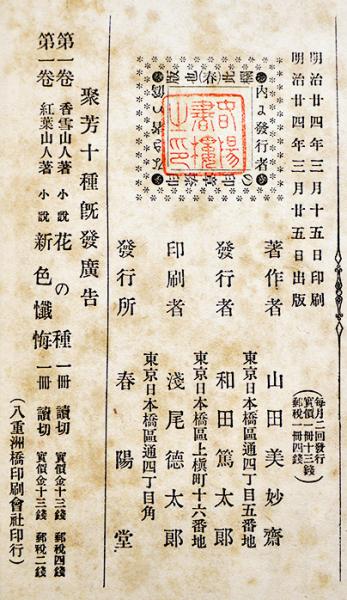 明治廿四年三月十五日印刷
明治廿四年三月廿五日出版
(毎月二回發行
實價一冊十三錢
郵税一冊四錢)
著作者　山田美妙齋
東京日本橋區通四丁目五番地
發行者　和田篤太郎
東京日本橋區上槇町十六番地
印刷者　淺尾德太郎
東京日本橋區通四丁目角
發行所　春陽堂
聚芳十種既發廣告
第一卷　香雪山人著　小説　花の種　一冊　讀切　實價金十三錢　郵税四錢
第一卷　紅葉山人著　小説　新色懺悔　一冊　讀切　實價金十三錢　郵税二錢
(八重洲橋印刷會社印行)